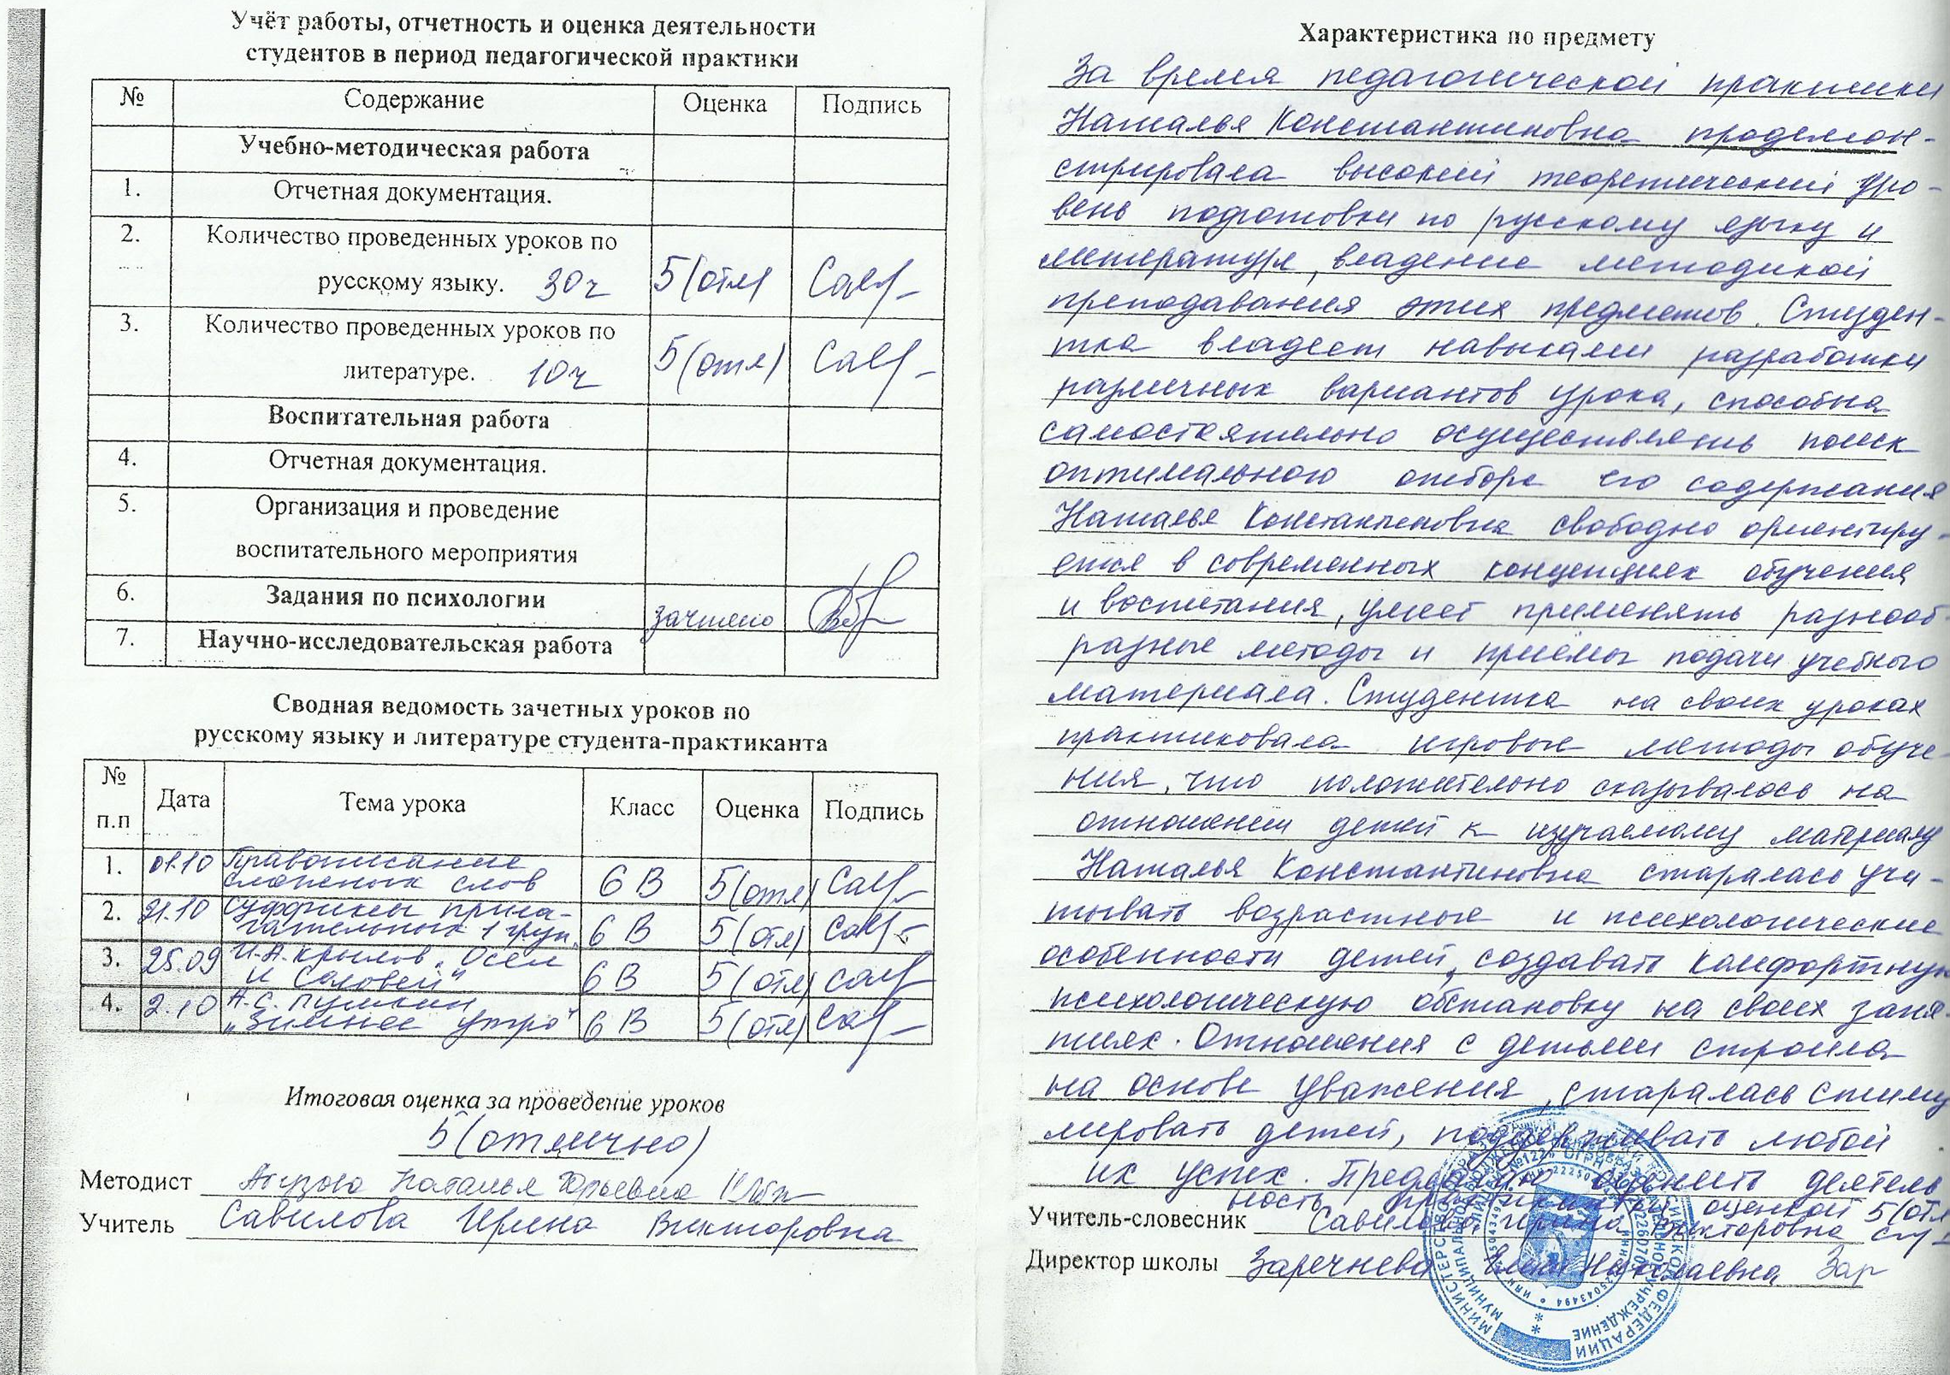 Учёт работы, отчетность и оценка деятельности
студентов в период педагогической практики
№ Содержание Оценка Подпись
Учебно-методическая работа
1. Отчетная документация.
2. Количество проведенных уроков по
русскому языку. 30ч 5(отл)
3. Количество проведенных уроков по
литературе. 10ч 5(отл)
Воспитательная работа
4. Отчетная документация.
5. Организация и проведение
воспитательного мероприятия
6. Задания по психологии зачтено
7. Научно-исследовательская работа
Сводная ведомость зачетных уроков по
русскому языку и литературе студента-практиканта
№
п.п Дата Тема урока Класс Оценка Подпись
1. 01.10 Правописание
сложных слов 6 В 5(отл)
2. 21.10 Суффиксы прила-
гательных 1 груп. 6 В 5(отл)
3. 25.09 И.А. Крылов „Осел
и Соловей" 6 В 5(отл)
4. 2.10 А.С. Пушкин
„Зимнее утро" 6 В 5(отл)
Итоговая оценка за проведение уроков
5(отлично)
Методист Наталья Юрьевна
Учитель Савилова Ирина Викторовна
Характеристика по предмету
За время педагогической практики
Наталья Константиновна продемон-
стрировала высокий теоретический уро-
вень подготовки по русскому языку и
литературе, владение методикой
преподавания этих предметов. Студен-
тка владеет навыками разработки
различных вариантов урока, способна
самостоятельно осуществлять поиск
оптимального отбора его содержания
Наталья Константиновна свободно ориентиру-
ется в современных концепциях обучения
и воспитания, умеет применять разнооб-
разные методы и приёмы подачи учебного
материала. Студентка на своих уроках
практиковала игровые методы обуче-
ния, что положительно сказывалось на
отношении детей к изучаемому материалу
Наталья Константиновна старалась учи-
тывать возрастные и психологические
особенности детей, создавать комфортную
психологическую обстановку на своих заня-
тиях. Отношения с детьми строила
на основе уважения, старалась стиму
лировать детей, поддерживать любой
их успех. Предлагаю оценить деятель
ность практиканта оценкой 5(отл
Учитель-словесник Савилова Ирина Викторовна
Директор школы Заречнева Елена Николаевна Зар